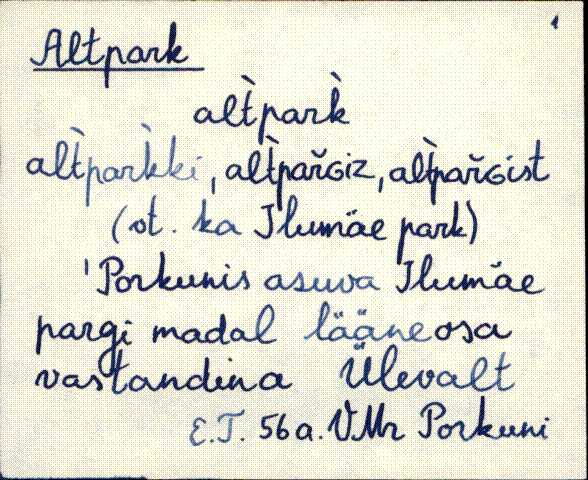 Altpark
alt̀park̀
alt̀park̀ki, alt̀par̆Giz, alt̀par̆Gist
(vt. ka Ilumäe park)
'Porkunis asuva Ilumäe
pargi madal lääneosa
vastandina Ülevalt
E.T. 56a. VMr Porkuni